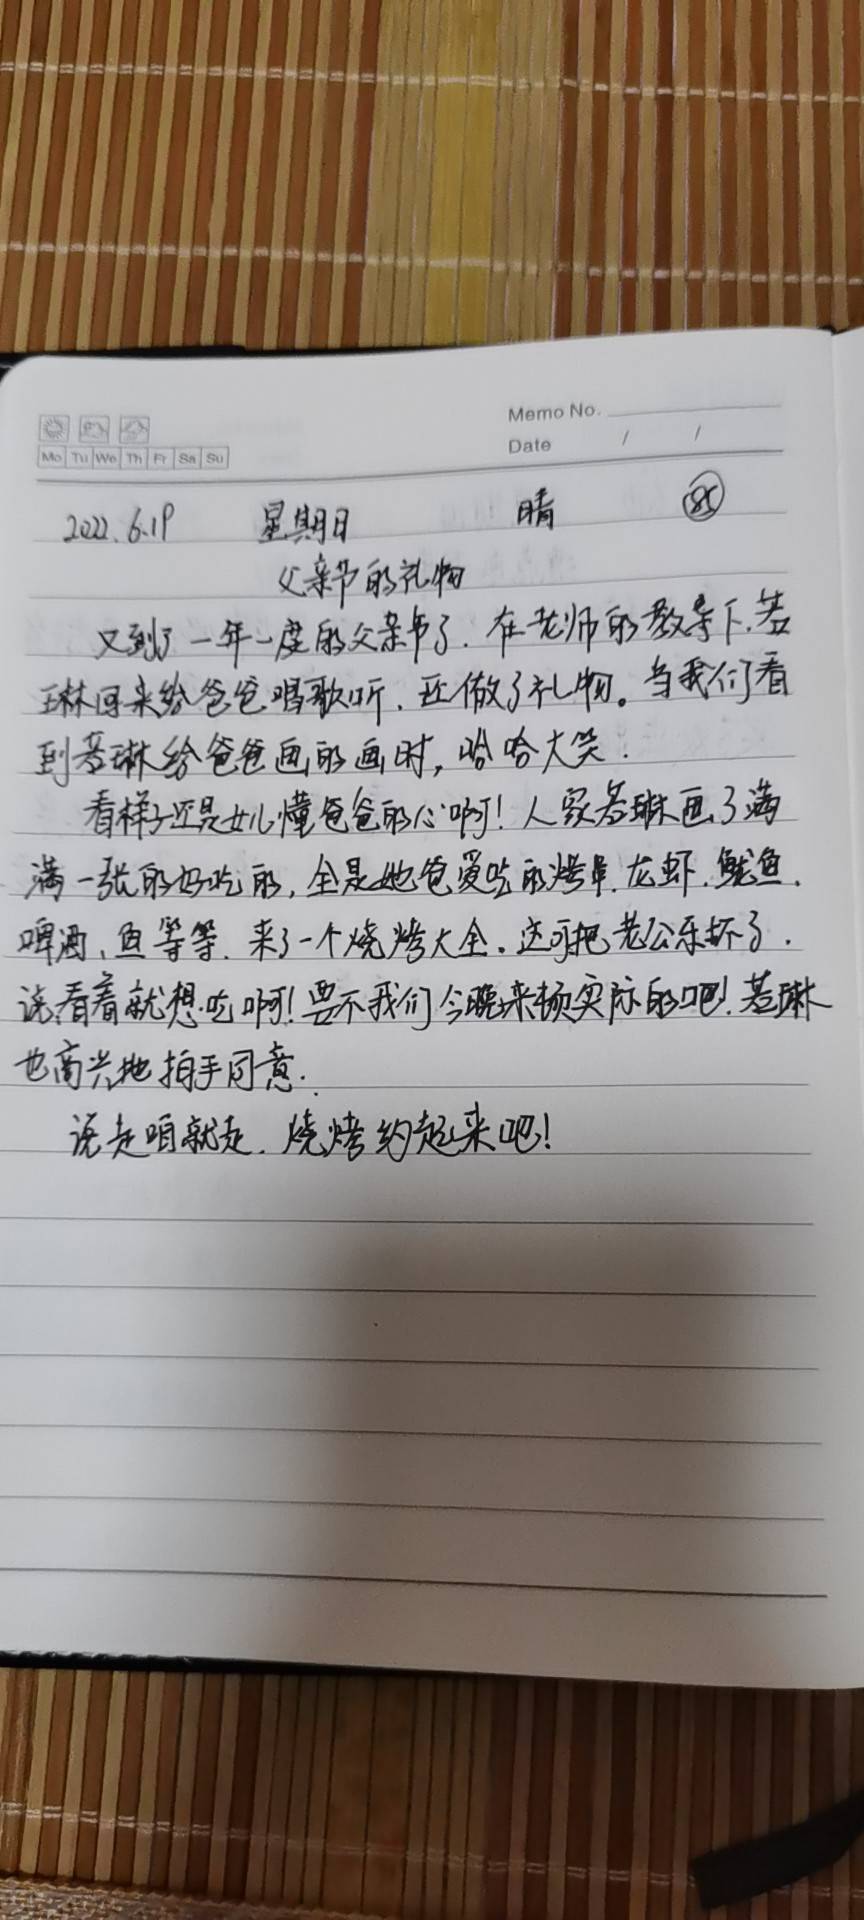 Memo No.
Date / /
Mo Tu We Th Fr Sa Su
2022.6.19 星期日 晴 85
父亲节的礼物
又到了一年一度的父亲节了.在老师的教导下.若
琳回来给爸爸唱歌听.还做了礼物。当我们看
到若琳给爸爸画的画时,哈哈大笑.
看样子还是女儿懂爸爸的心啊!人家若琳画了满
满一张的好吃的,全是她爸爱吃的烤串.龙虾.鱿鱼.
啤酒、鱼等等.来了一个烧烤大全.这可把老公乐坏了.
说看着就想吃啊!要不我们今晚来顿实际的吧!若琳
也高兴地拍手同意.
说走咱就走.烧烤约起来吧!